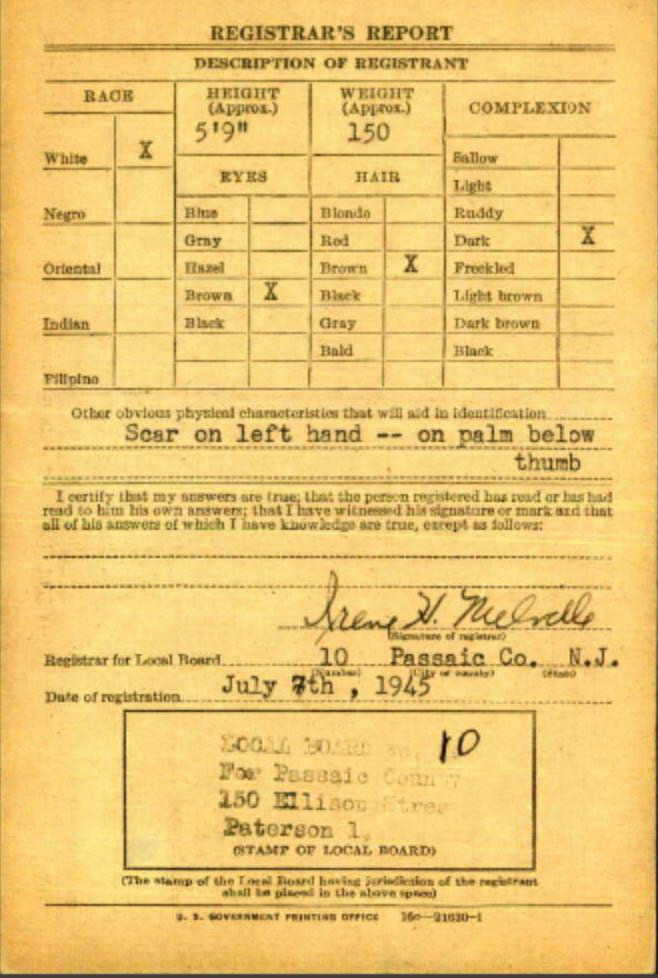 REGISTRAR'S REPORT
DESCRIPTION OF REGISTRANT
RACE
HEIGHT
(Approx.)
5'9"
WEIGHT
(Approx.)
150
COMPLEXION
White X
Negro
Oriental
Indian
Filipino
EYES
Blue
Gray
Hazel
Brown X
Black
HAIR
Blonde
Red
Brown X
Black
Gray
Bald
Sallow
Light
Ruddy
Dark X
Freckled
Light brown
Dark brown
Black
Other obvious physical characteristics that will aid in identification
Scar on left hand -- on palm below
thumb
I certify that my answers are true; that the person registered has read or has had
read to him his own answers; that I have witnessed his signature or mark and that
all of his answers of which I have knowledge are true, except as follows:
Irene H. Melville
(Signature of registrar)
Registrar for Local Board 10 Passaic Co. N.J.
(Number) (City or county) (State)
Date of registration July 7th, 1945
LOCAL BOARD No. 10
For Passaic County
150 Ellison Stree
Paterson 1,
(STAMP OF LOCAL BOARD)
(The stamp of the Local Board having jurisdiction of the registrant
shall be placed in the above space)
U. S. GOVERNMENT PRINTING OFFICE 16c—21630-1